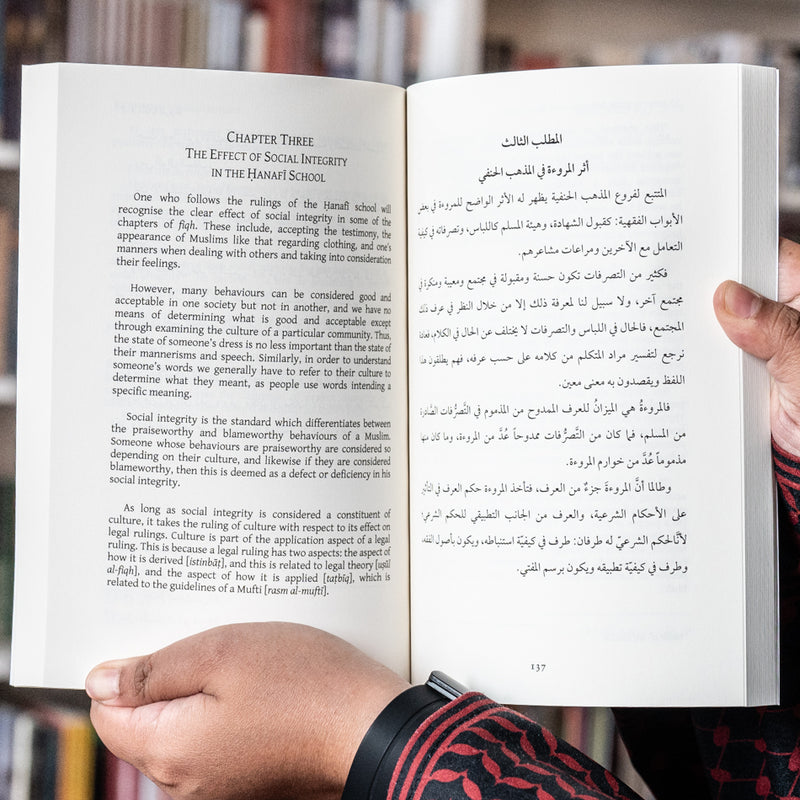 CHAPTER THREE
THE EFFECT OF SOCIAL INTEGRITY
IN THE ḤANAFĪ SCHOOL
One who follows the rulings of the Ḥanafī school will
recognise the clear effect of social integrity in some of the
chapters of fiqh. These include, accepting the testimony, the
appearance of Muslims like that regarding clothing, and one's
manners when dealing with others and taking into consideration
their feelings.
However, many behaviours can be considered good and
acceptable in one society but not in another, and we have no
means of determining what is good and acceptable except
through examining the culture of a particular community. Thus,
the state of someone's dress is no less important than the state of
their mannerisms and speech. Similarly, in order to understand
someone's words we generally have to refer to their culture to
determine what they meant, as people use words intending a
specific meaning.
Social integrity is the standard which differentiates between
the praiseworthy and blameworthy behaviours of a Muslim.
Someone whose behaviours are praiseworthy are considered so
depending on their culture, and likewise if they are considered
blameworthy, then this is deemed as a defect or deficiency in his
social integrity.
As long as social integrity is considered a constituent of
culture, it takes the ruling of culture with respect to its effect on
legal rulings. Culture is part of the application aspect of a legal
ruling. This is because a legal ruling has two aspects: the aspect of
how it is derived [istinbāṭ], and this is related to legal theory [uṣūl
al-fiqh], and the aspect of how it is applied [taṭbīq], which is
related to the guidelines of a Mufti [rasm al-muftī].
المطلب الثالث
أثر المروءة في المذهب الحنفي
المتتبع لفروع المذهب الحنفية يظهر له الأثر الواضح للمروءة في بعض
الأبواب الفقهية: كقبول الشهادة، وهيئة المسلم كاللباس، وتصرفاته في كيفية
التعامل مع الآخرين ومراعات مشاعرهم.
فكثير من التصرفات تكون حسنة ومقبولة في مجتمع ومعيبة ومنكرة في
مجتمع آخر، ولا سبيل لنا لمعرفة ذلك إلا من خلال النظر في عرف ذلك
المجتمع، فالحال في اللباس والتصرفات لا يختلف عن الحال في الكلام، فعادة
نرجع لتفسير مراد المتكلم من كلامه على حسب عرفه، فهم يطلقون هذا
اللفظ ويقصدون به معنى معين.
فالمروءةُ هي الميزانُ للعرف الممدوح من المذموم في التَّصرُّفات الصَّادرة
من المسلم، فما كان من التَّصرُّفات ممدوحاً عُدَّ من المروءة، وما كان منها
مذموماً عُدَّ من خوارم المروءة.
وطالما أنَّ المروءةَ جزءٌ من العرف، فتأخذ المروءة حكم العرف في التأثير
على الأحكام الشرعية، والعرف من الجانب التطبيقي للحكم الشرعي؛
لأنَّ الحكم الشرعيّ له طرفان: طرف في كيفيّة استنباطه، ويكون بأصول الفقه،
وطرف في كيفيّة تطبيقه ويكون برسم المفتي.
137